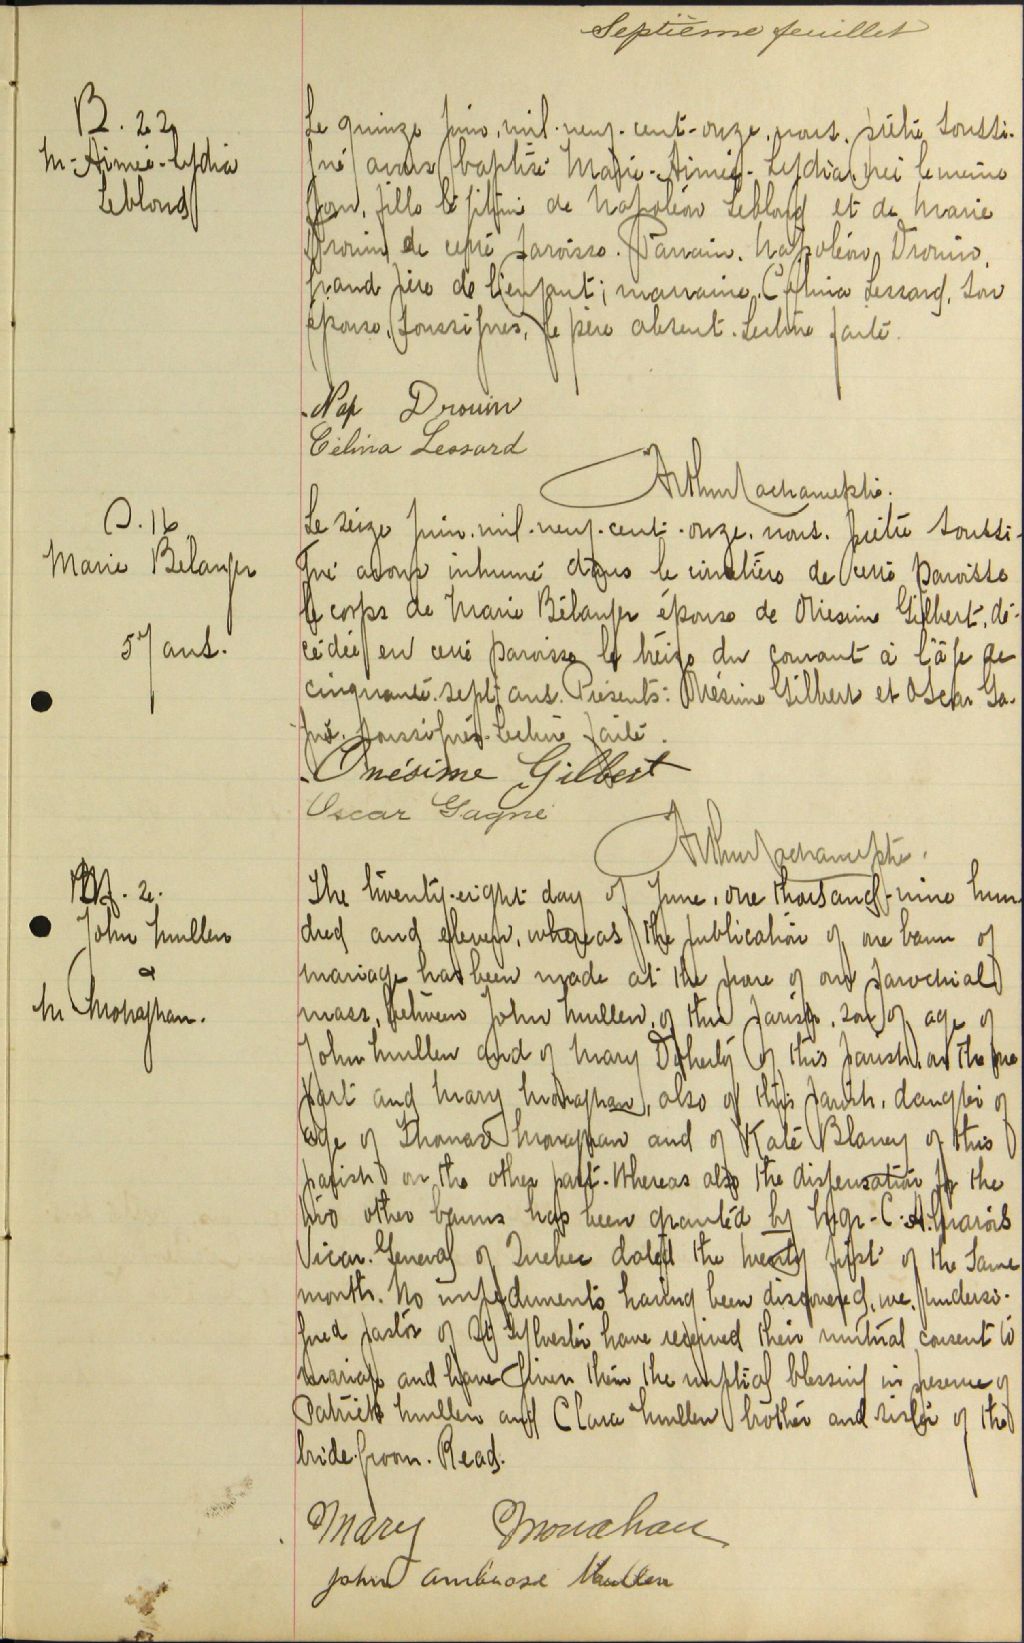 Septième feuillet
B. 22
M-Aimée-Lydia
Leblond
Le quinze juin, mil-neuf-cent-onze, nous, prêtre soussi-
gné avons baptisé Marie-Aimée-Lydia, née le même
jour, fille légitime de Napoléon Leblond et de Marie
Drouin de cette paroisse. Parrain, Napoléon Drouin,
grand père de l'enfant; marraine, Célina Lessard, son
épouse, soussignés, le père absent. Lecture faite.
Nap Drouin
Célina Lessard
Arthur Lachance Ptre.
S. 16
Marie Bélanger
57 ans.
Le seize juin, mil-neuf-cent-onze, nous, prêtre soussi-
gné avons inhumé dans le cimetière de cette paroisse
le corps de Marie Bélanger épouse de Onésime Gilbert, dé-
cédée en cette paroisse le treize du courant à l'âge de
cinquante-sept ans. Présents: Onésime Gilbert et Oscar Ga-
gné, soussignés. Lecture faite.
Onésime Gilbert
Oscar Gagné
Arthur Lachance Ptre.
M. 2.
John Mullen
&
M Monaghan.
The twenty-eight day of June, one thousand-nine hun
dred and eleven, whereas the publication of one bann of
mariage has been made at the prone of our parochial
mass, between John Mullen, of this parish, son of age of
John Mullen and of Mary Doherty of this parish on the one
part and Mary Monaghan, also of this parish, daugter of
age of Thomas Monaghan and of Kate Blaney of this
parish on the other part. Whereas also the dispensation for the
two other banns has been granted by Mgr-C-A. Marois
Vicar-General of Quebec dated the twenty first of the same
month. No impediments having been discovered, we, undersi-
gned pastor of St Sylvester have received their mutual consent to
mariage and have given them the nuptial blessing in presence of
Patrick Mullen and Clara Mullen brother and sister of the
bride-groom. Read.
Mary Monahan
John Ambrose Mullen